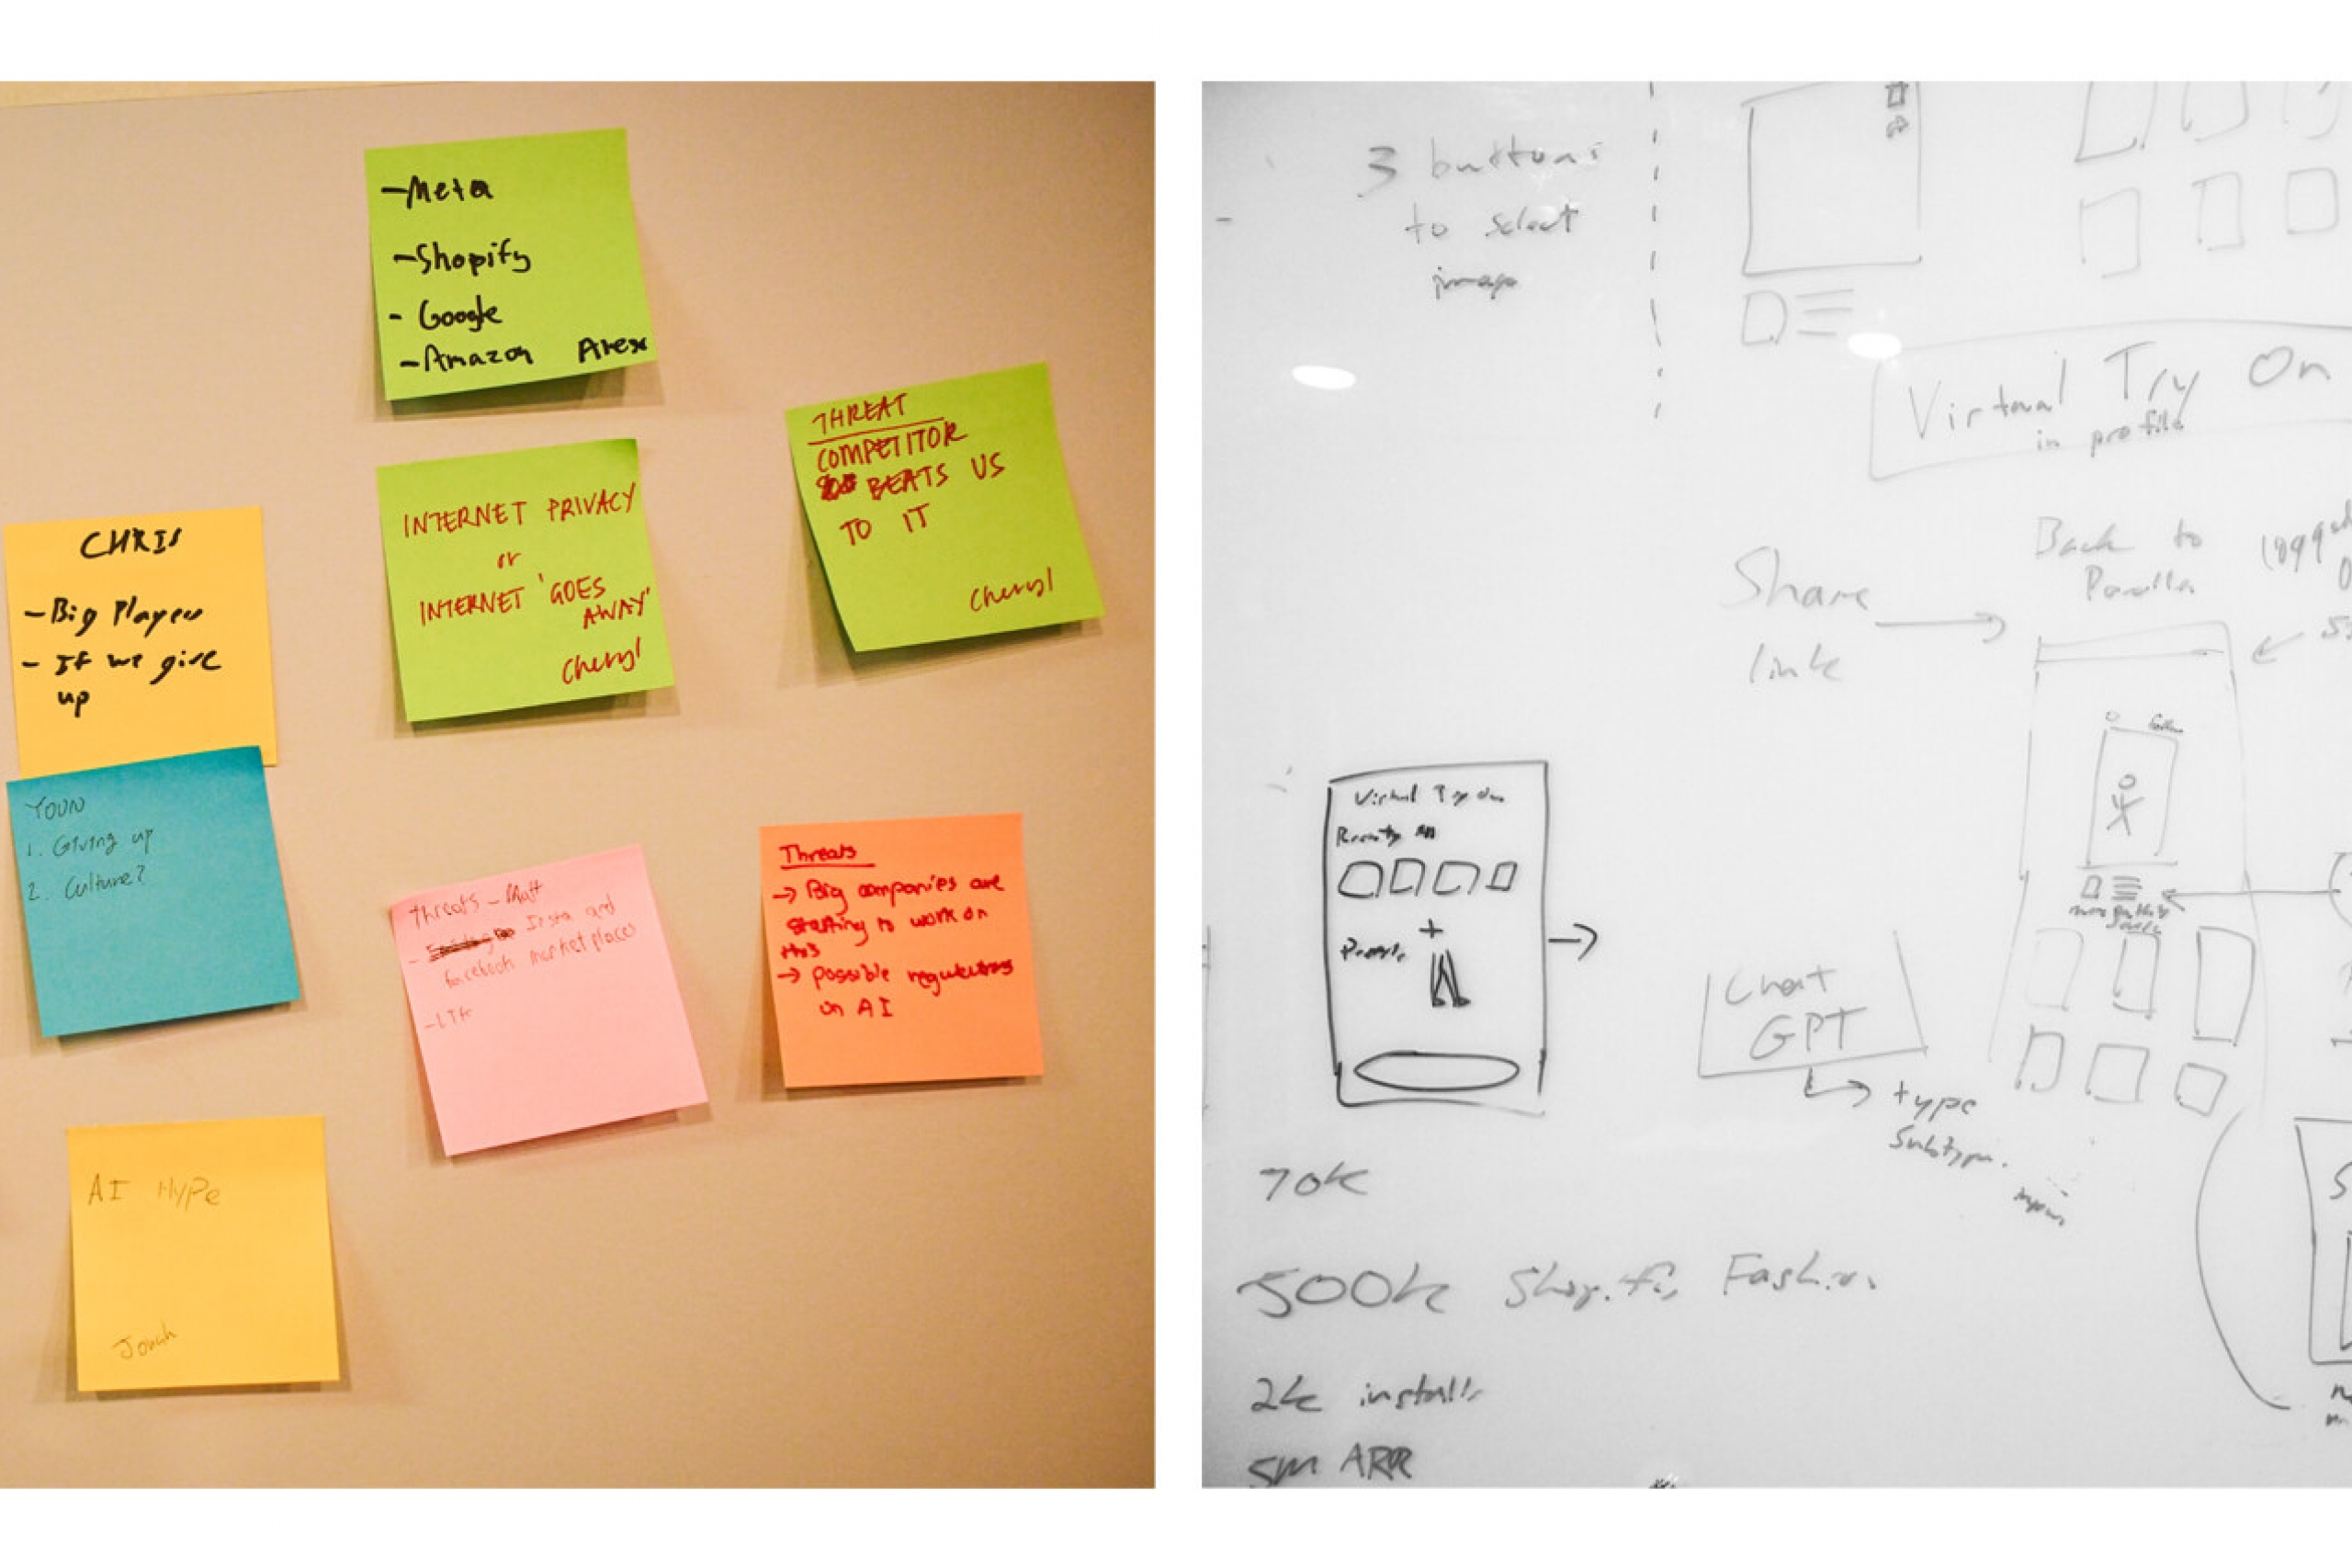 -Meta
-Shopify
- Google
-Amazon Arex
THREAT
COMPETITOR
BEATS US
TO IT
Cheryl
INTERNET PRIVACY
or
INTERNET 'GOES
AWAY'
Cheryl
CHRIS
-Big Player
- If we give
up
YOUN
1. Giving up
2. Culture?
Threats - Matt
- Insta and
facebook market places
-LTK
Threats
→ Big companies are
starting to work on
this
→ possible regulations
in AI
AI HYPe
Jonah
3 buttons
to select
image
Virtual Try On
in profile
Share
link
Back to
Virtual Try On
Chat
GPT
type
Subtype.
70k
500k Shopify Fashion
2k installs
5m ARR